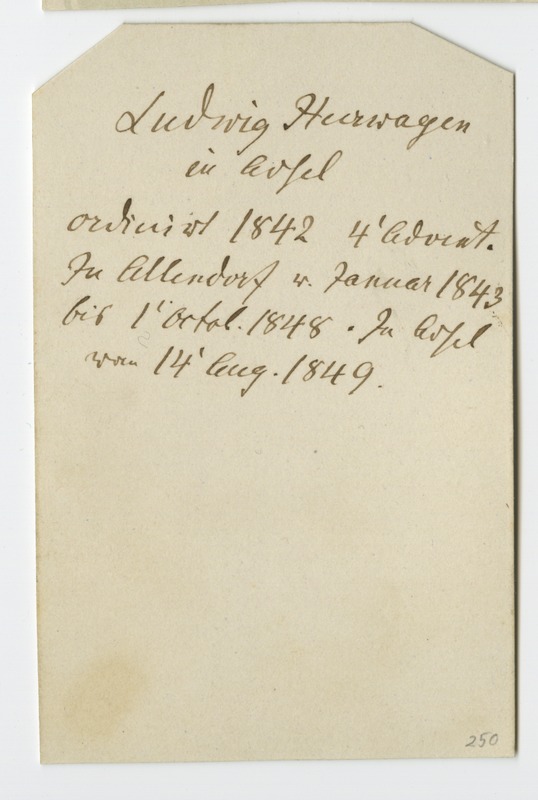 Ludwig Heerwagen
in Assel
ordinirt 1842 4' Advent.
In Allendorf v. Januar 1843
bis 1' Octob. 1848. In Assel
vom 14' Aug. 1849.
250